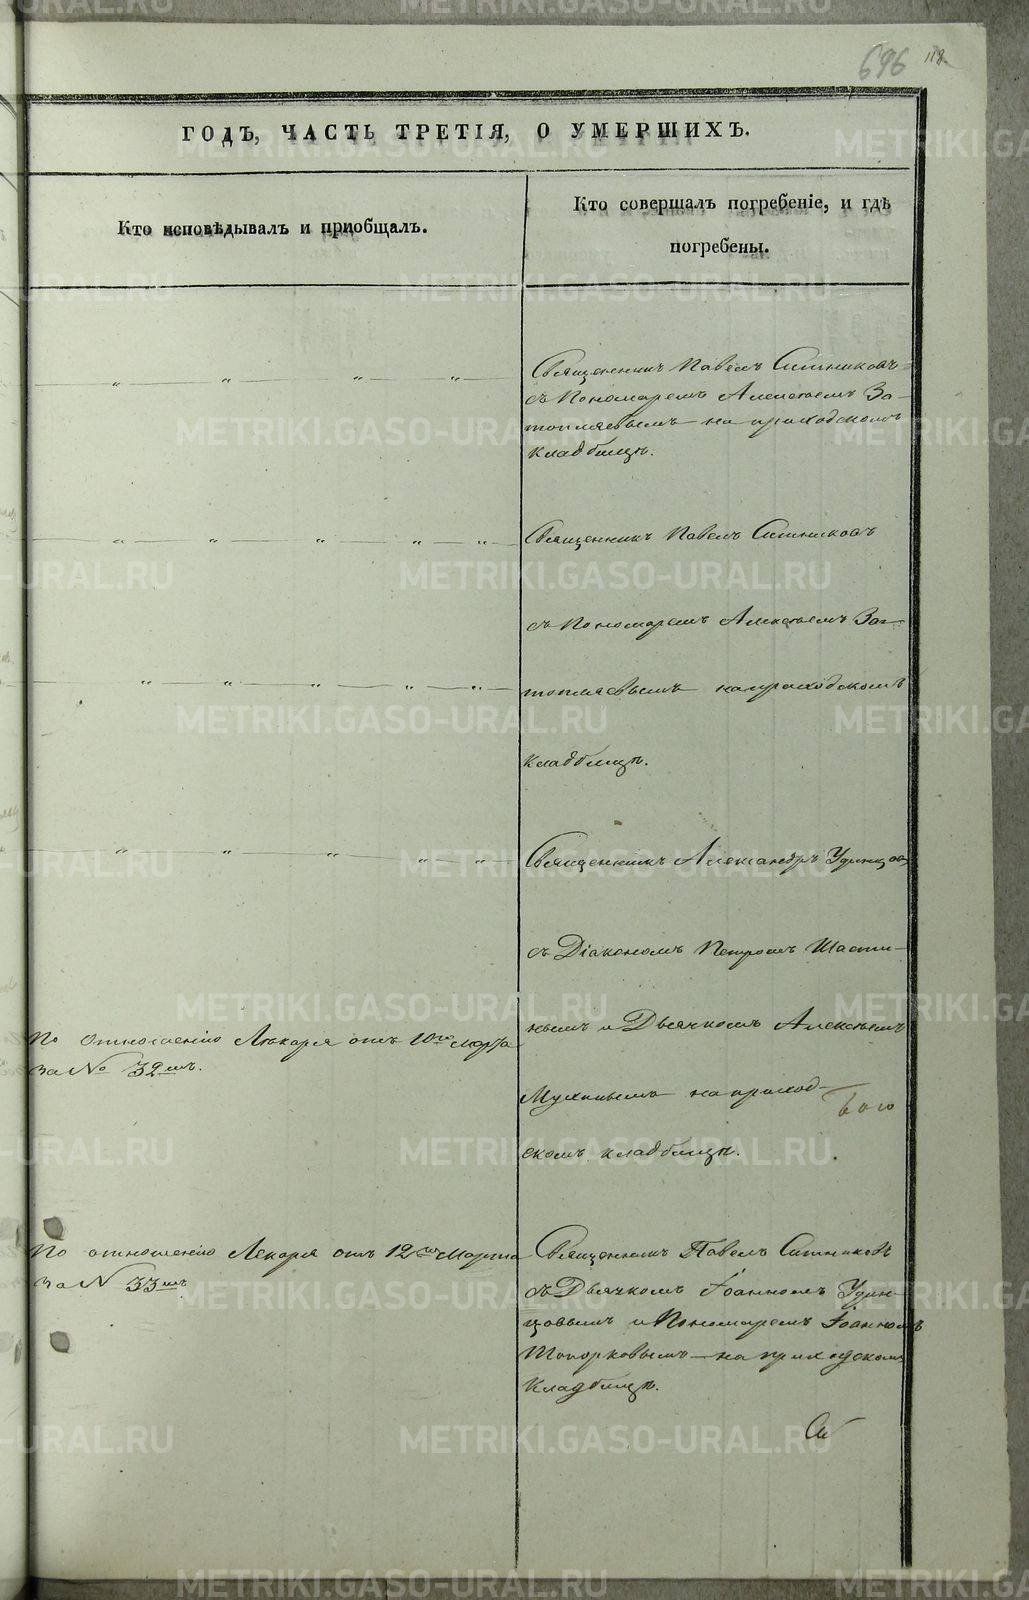 696 118.
ГОДЪ, ЧАСТЬ ТРЕТІЯ, О УМЕРШИХЪ.
Кто исповѣдывалъ и пріобщалъ.
Кто совершалъ погребеніе, и гдѣ
погребены.
— „ — „ — „ — „ —
Священникъ Павелъ Ситниковъ
съ Пономаремъ Алексѣемъ За-
топляевымъ на приходскомъ
кладбищѣ.
— „ — „ — „ — „ — „ —
Священникъ Павелъ Ситниковъ
съ Пономаремъ Алексѣемъ За-
— „ — „ — „ — „ — „ —
топляевымъ на приходскомъ
кладбищѣ.
— „ — „ — „ — „ — „ —
Священникъ Александръ Удинцовъ
съ Діакономъ Петромъ Шасти-
нымъ и Дьячкомъ Алексѣемъ
По отношенію Лекаря отъ 10го Марта
за № 32мъ.
Мухинымъ на приход-
скомъ кладбищѣ.
По отношенію Лекаря отъ 12го Марта
за № 33мъ
Священникъ Павелъ Ситниковъ
съ Дьячкомъ Іоанномъ Удин-
цовымъ и Пономаремъ Іоанномъ
Топорковымъ на приходскомъ
кладбищѣ.
METRIKI.GASO-URAL.RU